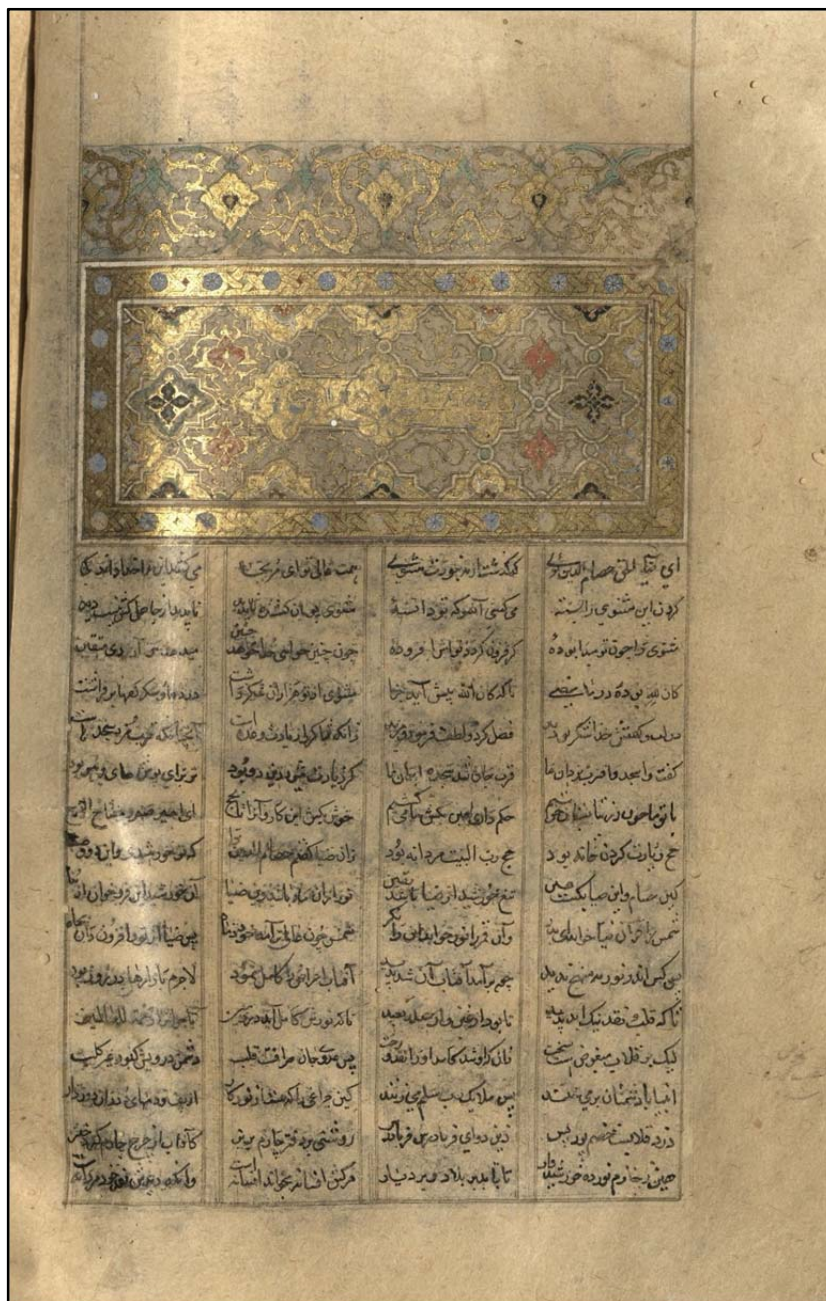 ای ضیاء الحق حسام الدین توی که گذشت از مه بنورت مثنوی همت عالی تو ای مرتجا می کشد این را خدا داند کجا
کردن این مثنوی را بسته می کشی آنسو که تو دانستهٔ مثنوی پویان کشنده ناپدید ناپدید از جاهلی کش نیست دید
مثنوی را چون تو مبدا بودهٔ کر فزون کردد تواش افزودهٔ چون چنین خواهی خدا خواهد چنین میدهد حق آرزوی متقین
کان لله بودهٔ در ما مضی تا که کان الله پیش آمد جزا مثنوی از تو هزاران شکر داشت در دعا و شکر کفها بر فراشت
در لب و کفش خدا شکر تو دید فضل کرد و لطف فرمود و مزید زانکه شاکر را زیادت وعده است آنچنانکه قرب مزد سجده است
کفت واسجد واقترب یزدان ما قرب جان شد سجده ابدان ما کر زیادت میشود زین رو بود نز برای بوش و های و هو بود
با تو ما چون رز بتابستان خوشیم حکم داری هین بکش تا می کشیم خوش بکش این کاروانرا تا بحج ای امیر صبر مفتاح الفرج
حج زیارت کردن خانه بود حج رب البیت مردانه بود زان ضیا کفتم حسام الدین ترا که تو خورشیدی و این دو وصفها
کین حسام و این ضیا یکیست هین تیغ خورشید از ضیا باشد یقین نور از آن ماه باشد وین ضیا آن خورشید این فرو خوان از نبا
شمس را قرآن ضیا خواند ای پدر وان قمر را نور خواند این را نکر شمس چون عالی تر آمد خود ز ماه پس ضیا از نور افزون دان بجاه
بس کس اندر نور مه منهج ندید چون برآمد آفتاب آن شد پدید آفتاب اعراض را کامل نمود لاجرم بازارها در روز بود
تا که قلب و نقد نیک آید پدید تا بود از غبن و از حیله بعید تا که نورش کامل آمد در زمین تاجران را رحمة للعالمین
لیک بر قلاب مبغوض است و سخت زان کزو شد کاسد او را نقد و رخت پس عدو جان صرافست قلب دشمن درویش که بود غیر کلب
انبیا با دشمنان بر می تنند پس ملایک رب سلم می زنند کین چراغی را که هست او نور کار از پف و دمهای دزدان دور دار
دزد و قلابست خصم نور بس زین دو ای فریادرس فریاد رس روشنی بر دفتر چارم بریز کافتاب از چرخ چارم کرد خیز
هین ز چارم نور ده خورشیدوار تا بتابد بر بلاد و بر دیار هر کش افسانه بخواند افسانه است وانکه دیدش نقد خود مردانه است